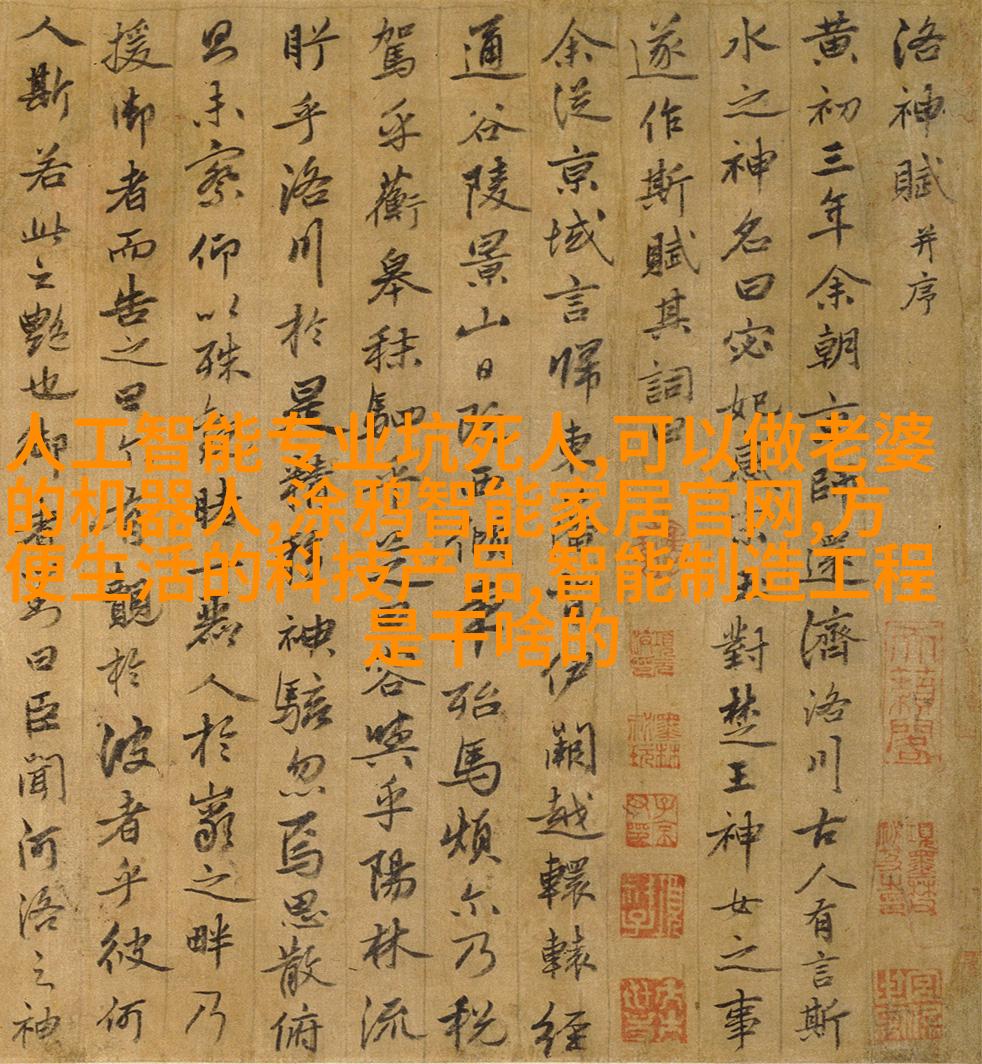 洛神賦并序
黃初三年余朝京師還濟洛川古人有言斯
水之神名曰宓妃感宋玉對楚王神女之事
遂作斯賦其詞曰
余從京域言歸東藩背伊闕越轘轅經
通谷陵景山日既西傾車殆馬煩尒乃稅
駕乎蘅皋秣駟乎芝田容與乎陽林流
眄乎洛川於是精移神駭忽焉思散俯
則未察仰以殊觀睹一麗人於巖之畔乃
援御者而告之曰尒有覿於彼者乎彼何
人斯若此之艷也御者對曰臣聞河洛之神
人工智能专业坑死人,可以做老婆
的机器人,涂鸦智能家居官网,方
便生活的科技产品,智能制造工程
是干啥的